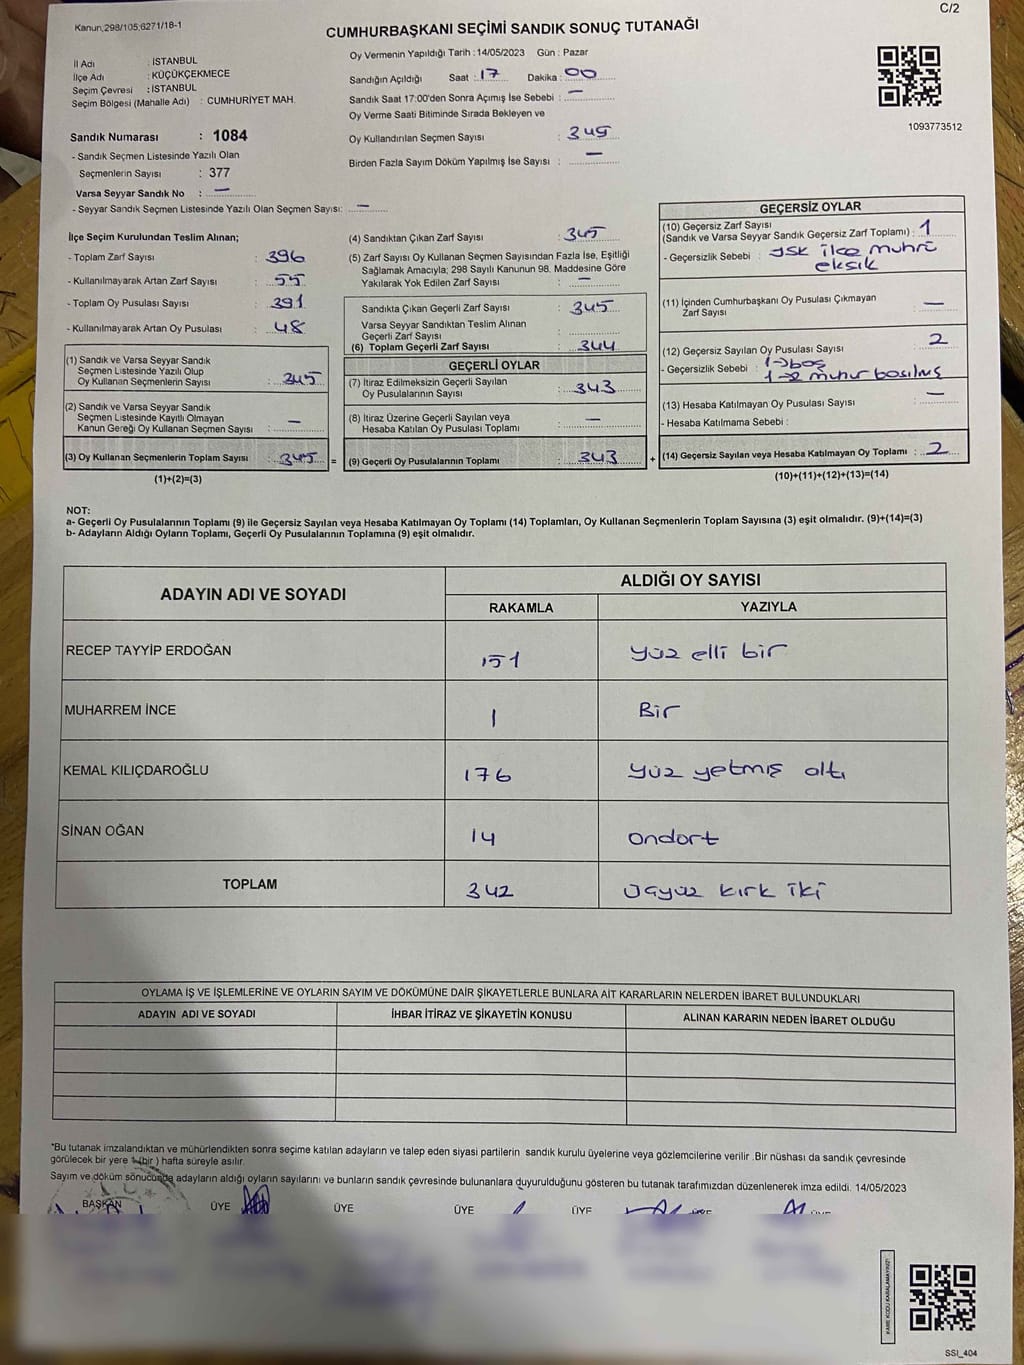 C/2
Kanun,298/105,6271/18-1
CUMHURBAŞKANI SEÇİMİ SANDIK SONUÇ TUTANAĞI
İl Adı : İSTANBUL
İlçe Adı : KÜÇÜKÇEKMECE
Seçim Çevresi : İSTANBUL
Seçim Bölgesi (Mahalle Adı) : CUMHURİYET MAH.
Sandık Numarası : 1084
- Sandık Seçmen Listesinde Yazılı Olan
Seçmenlerin Sayısı : 377
Varsa Seyyar Sandık No : —
- Seyyar Sandık Seçmen Listesinde Yazılı Olan Seçmen Sayısı: —
Oy Vermenin Yapıldığı Tarih : 14/05/2023 Gün : Pazar
Sandığın Açıldığı Saat : 17 Dakika : 00
Sandık Saat 17:00'den Sonra Açımış İse Sebebi : —
Oy Verme Saati Bitiminde Sırada Bekleyen ve
Oy Kullandırılan Seçmen Sayısı : 345
Birden Fazla Sayım Döküm Yapılmış İse Sayısı : —
1093773512
İlçe Seçim Kurulundan Teslim Alınan;
- Toplam Zarf Sayısı : 396
- Kullanılmayarak Artan Zarf Sayısı : 55
- Toplam Oy Pusulası Sayısı : 391
- Kullanılmayarak Artan Oy Pusulası : 48
(1) Sandık ve Varsa Seyyar Sandık
Seçmen Listesinde Yazılı Olup
Oy Kullanan Seçmenlerin Sayısı : 345
(2) Sandık ve Varsa Seyyar Sandık
Seçmen Listesinde Kayıtlı Olmayan
Kanun Gereği Oy Kullanan Seçmen Sayısı : —
(3) Oy Kullanan Seçmenlerin Toplam Sayısı : 345 =
(1)+(2)=(3)
(4) Sandıktan Çıkan Zarf Sayısı : 345
(5) Zarf Sayısı Oy Kullanan Seçmen Sayısından Fazla İse, Eşitliği
Sağlamak Amacıyla; 298 Sayılı Kanunun 98. Maddesine Göre
Yakılarak Yok Edilen Zarf Sayısı : —
Sandıkta Çıkan Geçerli Zarf Sayısı : 345
Varsa Seyyar Sandıktan Teslim Alınan
Geçerli Zarf Sayısı :
(6) Toplam Geçerli Zarf Sayısı : 344
GEÇERLİ OYLAR
(7) İtiraz Edilmeksizin Geçerli Sayılan
Oy Pusulasının Sayısı : 343
(8) İtiraz Üzerine Geçerli Sayılan veya
Hesaba Katılan Oy Pusulası Toplamı : —
(9) Geçerli Oy Pusulalarının Toplamı : 343 +
GEÇERSİZ OYLAR
(10) Geçersiz Zarf Sayısı
(Sandık ve Varsa Seyyar Sandık Geçersiz Zarf Toplamı) : 1
- Geçersizlik Sebebi : YSK ilçe muhrü
eksik
(11) İçinden Cumhurbaşkanı Oy Pusulası Çıkmayan
Zarf Sayısı : —
(12) Geçersiz Sayılan Oy Pusulası Sayısı : 2
- Geçersizlik Sebebi : 1->boş
1->2 muhur basılmış
(13) Hesaba Katılmayan Oy Pusulası Sayısı : —
- Hesaba Katılmama Sebebi :
(14) Geçersiz Sayılan veya Hesaba Katılmayan Oy Toplamı : 2
(10)+(11)+(12)+(13)=(14)
NOT:
a- Geçerli Oy Pusulalarının Toplamı (9) ile Geçersiz Sayılan veya Hesaba Katılmayan Oy Toplamı (14) Toplamları, Oy Kullanan Seçmenlerin Toplam Sayısına (3) eşit olmalıdır. (9)+(14)=(3)
b- Adayların Aldığı Oyların Toplamı, Geçerli Oy Pusulalarının Toplamına (9) eşit olmalıdır.
ADAYIN ADI VE SOYADI ALDIĞI OY SAYISI
RAKAMLA YAZIYLA
RECEP TAYYİP ERDOĞAN 151 yüz elli bir
MUHARREM İNCE 1 Bir
KEMAL KILIÇDAROĞLU 176 yüz yetmiş altı
SİNAN OĞAN 14 ondort
TOPLAM 342 üçyüz kırk iki
OYLAMA İŞ VE İŞLEMLERİNE VE OYLARIN SAYIM VE DÖKÜMÜNE DAİR ŞİKAYETLERLE BUNLARA AİT KARARLARIN NELERDEN İBARET BULUNDUKLARI
ADAYIN ADI VE SOYADI İHBAR İTİRAZ VE ŞİKAYETİN KONUSU ALINAN KARARIN NEDEN İBARET OLDUĞU
*Bu tutanak imzalandıktan ve mühürlendikten sonra seçime katılan adayların ve talep eden siyasi partilerin sandık kurulu üyelerine veya gözlemcilerine verilir .Bir nüshası da sandık çevresinde
görülecek bir yere 1 (bir ) hafta süreyle asılır.
Sayım ve döküm sonucunda adayların aldığı oyların sayılarını ve bunların sandık çevresinde bulunanlara duyurulduğunu gösteren bu tutanak tarafımızdan düzenlenerek imza edildi. 14/05/2023
BAŞKAN ÜYE ÜYE ÜYE ÜYE ÜYE ÜYE
KARE KODU KARALAMAYINIZ!
SSI_404